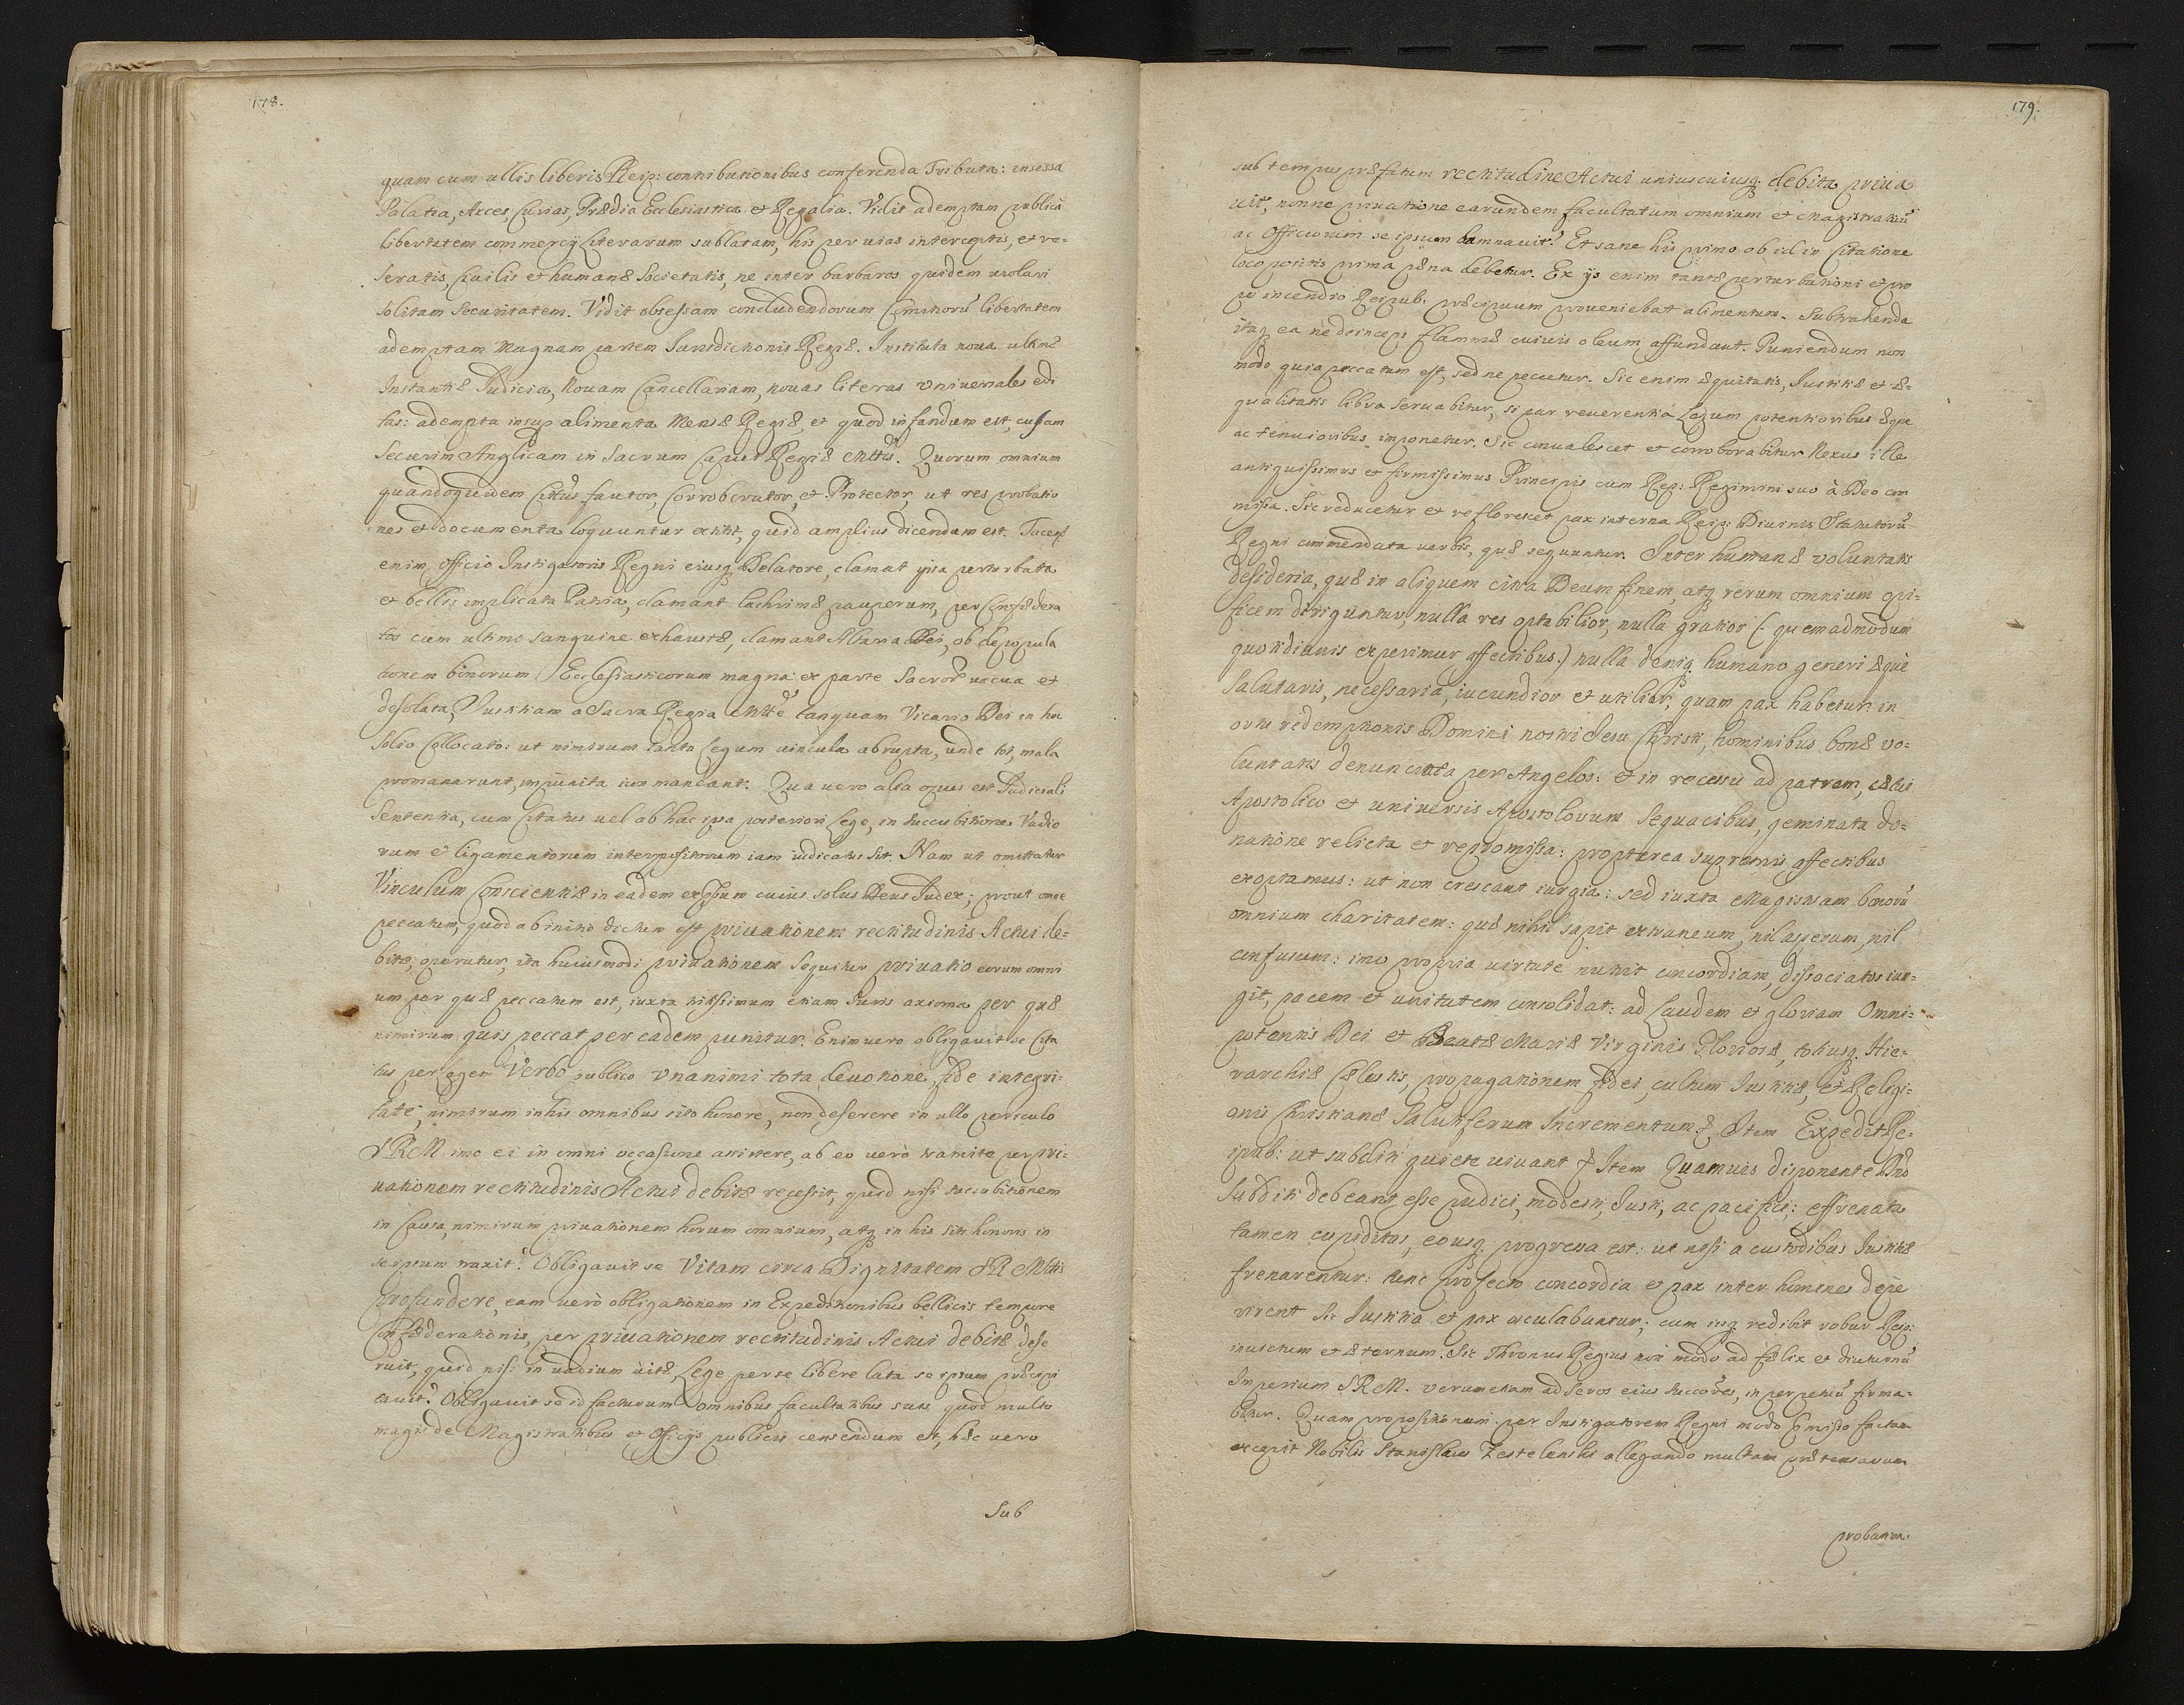 178.
quam cum ullis liberis Reip: contributionibus conferenda Tributa: insessa
Palatia, Arces, Curias, Prædia Ecclesiastica et Regalia. Vidit ademptam publicã
libertatem commercij Literarum sublatam, his per uias interceptis, et re-
seratis, Ciuilis et humanæ Societatis, ne inter barbaros quidem uiolari
solitam securitatem. Vidit obsessam concludendorum Comitiorũ libertatem
ademptam magnam partem Iurisdictionis Regiæ. Instituta noua ultimæ
Instantiæ Iudicia, Nouam Cancellariam, nouas literas vniuersales edi
tas: adempta insup alimenta Mensæ Regiæ, et quod infandum est, cusam
securim Anglicam in Sacrum Caput Regiæ Mttis. Quorum omnium
quandoquidem Cittus fautor, Corroborator, et Protector, ut res probatio
nes et documenta loquuntur extitit, quid amplius dicendum est. Tacen
enim officio Instigatoris Regni eiusq Delatore, clamat ipsa perturbata
et bellis implicata Patria, clamant lachrimæ pauperum, per Confœdera
tos cum ultimo sanguine exhaustæ, clamant Altaria Dei, ob depopula
tionem bonorum Ecclesiasticorum magna ex parte Sacror uacua et
desolata, Iustitiam a Sacra Regia Mtte tanquam Vicario Dei in hoc
solio Collocato: ut nimirum tanta Legum uincula abrupta, unde tot mala
promanarunt, impunita non maneant. Qua uero alia opus est Iudiciali
Sententia, cum Citatus uel ab hac ipsa posteriori Lege, in succubitione Vadio
rum et ligamentorum interpositorum iam iudicatus sit. Nam ut omittatur
Vinculum Conscientiæ in eadem expssum cuius solus Deus Iudex; prout omne
peccatum, quod ab initio dictum est priuationem rectitudinis Actui de-
bitæ, operatur, ita huiusmodi priuationem sequitur priuatio eorum omni
um per quæ peccatum est, iuxta tritissimum etiam Iuris axioma per quæ
nimirum quis peccat per eadem punitur. Enimuero obligauit se Cita
tus per Legem Verbo publico vnanimi tota deuotione, fide integri-
tate, nimirum in his omnibus sito honore, non deserere in ullo periculo
SRM imo ei in omni occasione assistere, ab eo uerò tramite per pri-
uationem rectitudinis Actui debitæ recessit, quid nisi succubitionem
in Causa, nimirum priuationem horum omnium, atq in his siti honoris in
seipsum traxit? Obligauit se Vitam circa Dignitatem SRMttis
profundere, eam uerò obligationem in Expeditionibus bellicis tempore
Confœderationis, per priuationem rectitudinis Actui debitæ dese
ruit, quid nisi in uadium uitæ, Lege per se libere lata se ipsum præcipi
tauit? Obligauit se id facturum omnibus facultatibus suis quod multo
magis de Magistratibus et Officijs publicis censendum est, hæc uero
Sub
179.
sub tempus præfatum rectitudine Actui uniuscuiusq debita priua
uit, nonne priuatione earundem facultatum omnium et Magistratuũ
ac Officiorum se ipsum damnauit? Et sane his primo ob id in Citatione
loco positis prima pœna debetur. Ex ijs enim tantæ perturbationi et pro
pe incendio Reipub. præcipuum proueniebat alimentum. Subtrahenda
itaq ea ne deinceps flammæ cuiuis oleum affundant. Puniendum non
modo quia peccatum est, sed ne peccetur. Sic enim æquitatis, Iustitiæ et æ-
qualitatis libra seruabitur, si par reuerentia Legum potentioribus æque
ac tenuioribus imponetur. Sic conualescet et corroborabitur Nexus ille
antiquissimus et firmissimus Principis cum Rep: Regimini suo à Deo com
missa. Sic reducetur et reflorescet pax interna Reip: Diuinis Statutorũ
Regni commendata uerbis, quæ sequuntur. Inter humanæ voluntatis
desideria, quæ in aliquem citra Deum finem, atq rerum omnium opi-
ficem diriguntur, nulla res optabilior, nulla gratior (: quemadmodum
quotidianis experimur affectibus:) nulla deniq humano generi æquè
salutaris, necessaria, iucundior et utilior, quam pax habetur: in
ortu redemptionis Domini nostri Iesu Christi, hominibus bonæ vo-
luntatis denunciata per Angelos: et in recessu ad patrem, cœtui
Apostolico et uniuersis Apostolorum sequacibus, geminata do-
natione relicta et repromissa: propterea supremis affectibus
exoptamus: ut non crescant iurgia: sed iuxta Magistram bonorũ
omnium charitatem: quæ nihil sapit extraneum, nil asperum, nil
confusum: imo propria uirtute nutrit concordiam, dissociatos iun-
git, pacem et unitatem consolidat: ad Laudem et gloriam Omni-
potentis Dei et Beatæ Mariæ Virginis Gloriosæ, totiusq Hie-
rarchiæ Cœlestis, propagationem fidei, cultum Iustitiæ, et Religi-
onis Christianæ salutiferum Incrementum. Item Expedit Re-
ipub: ut subditi quiete uiuant Item Quamuis disponente Dno
Subditi debeant esse pudici, modesti, Iusti, ac pacifici: effrenata
tamen cupiditas, eousq progressa est: ut nisi a custodibus Iustitiæ
frenarentur: tunc profecto concordia et pax inter homines depe
rirent Sic Iustitia et pax osculabuntur; cum iisq redibit robur Reip:
inuictum et æternum. Sic Thronus Regius non modo ad fælix et diuturnũ
Imperium SRM. verum etiam ad seros eius succores, in perpetuũ firma-
bitur. Quam propositionem per Instigatorem Regni modo pmisso factam
excepit Nobilis Stanislaus Zestelenski allegando multam prætensarum
probation.